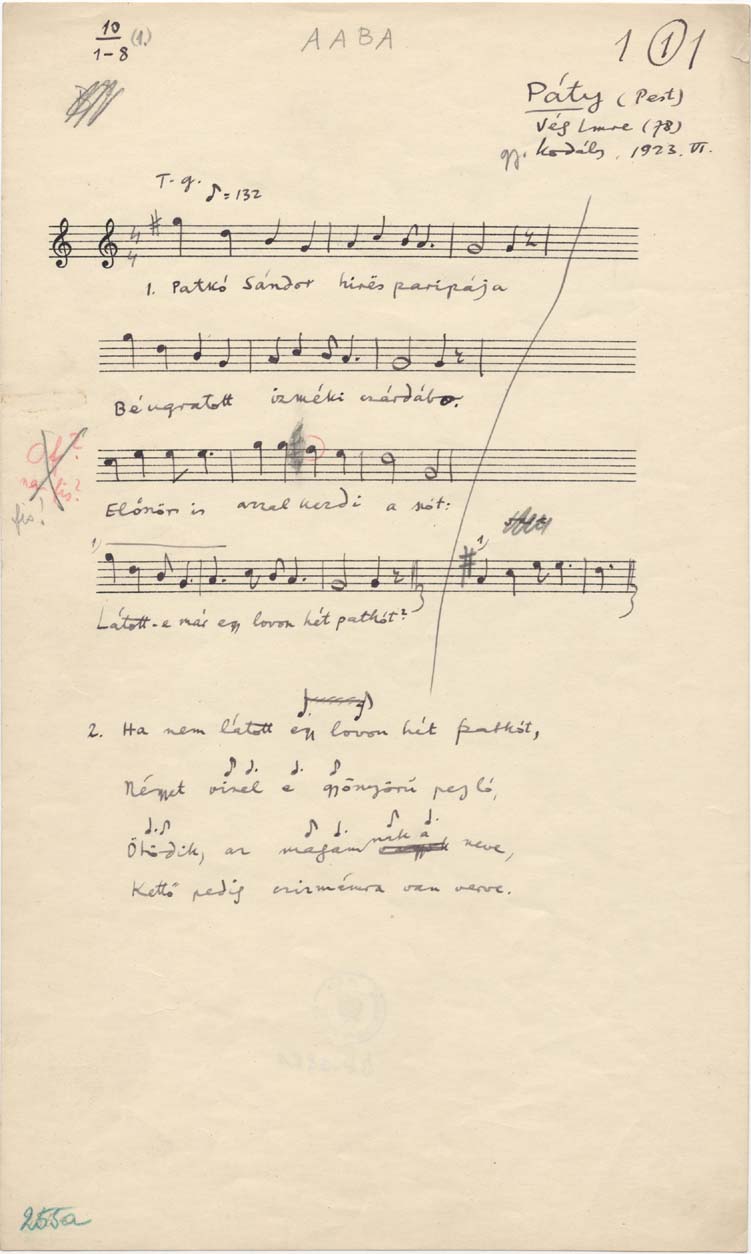 10
1-8 (1.)
AABA
1 1 1
Páty (Pest)
Vég Imre (78)
gy. Kodály, 1923. VI.
T-g. ♪=132
4
4
1. Patkó Sándor hires paripája
Béugratott izméki csárdábo.
Előnörs is azzal kezdi a szót:
na fis?
fis!
1)
1)
Látott-e már egy lovon hét patkót?
2. Ha nem látott egy lovon hét patkót,
Négyet visel e gyönyörű pejló,
Ötödik, az magamnak a neve,
Kettő pedig csizmámra van verve.
255a